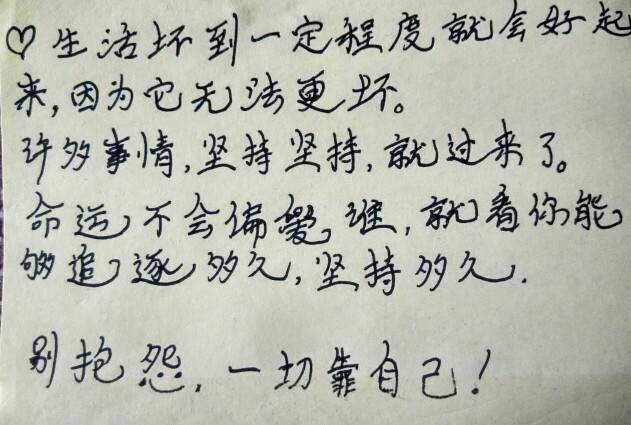 ♡生活坏到一定程度就会好起
来,因为它无法更坏。
许多事情,坚持坚持,就过来了。
命运不会偏爱谁,就看你能
够追逐多久,坚持多久.
别抱怨,一切靠自己!